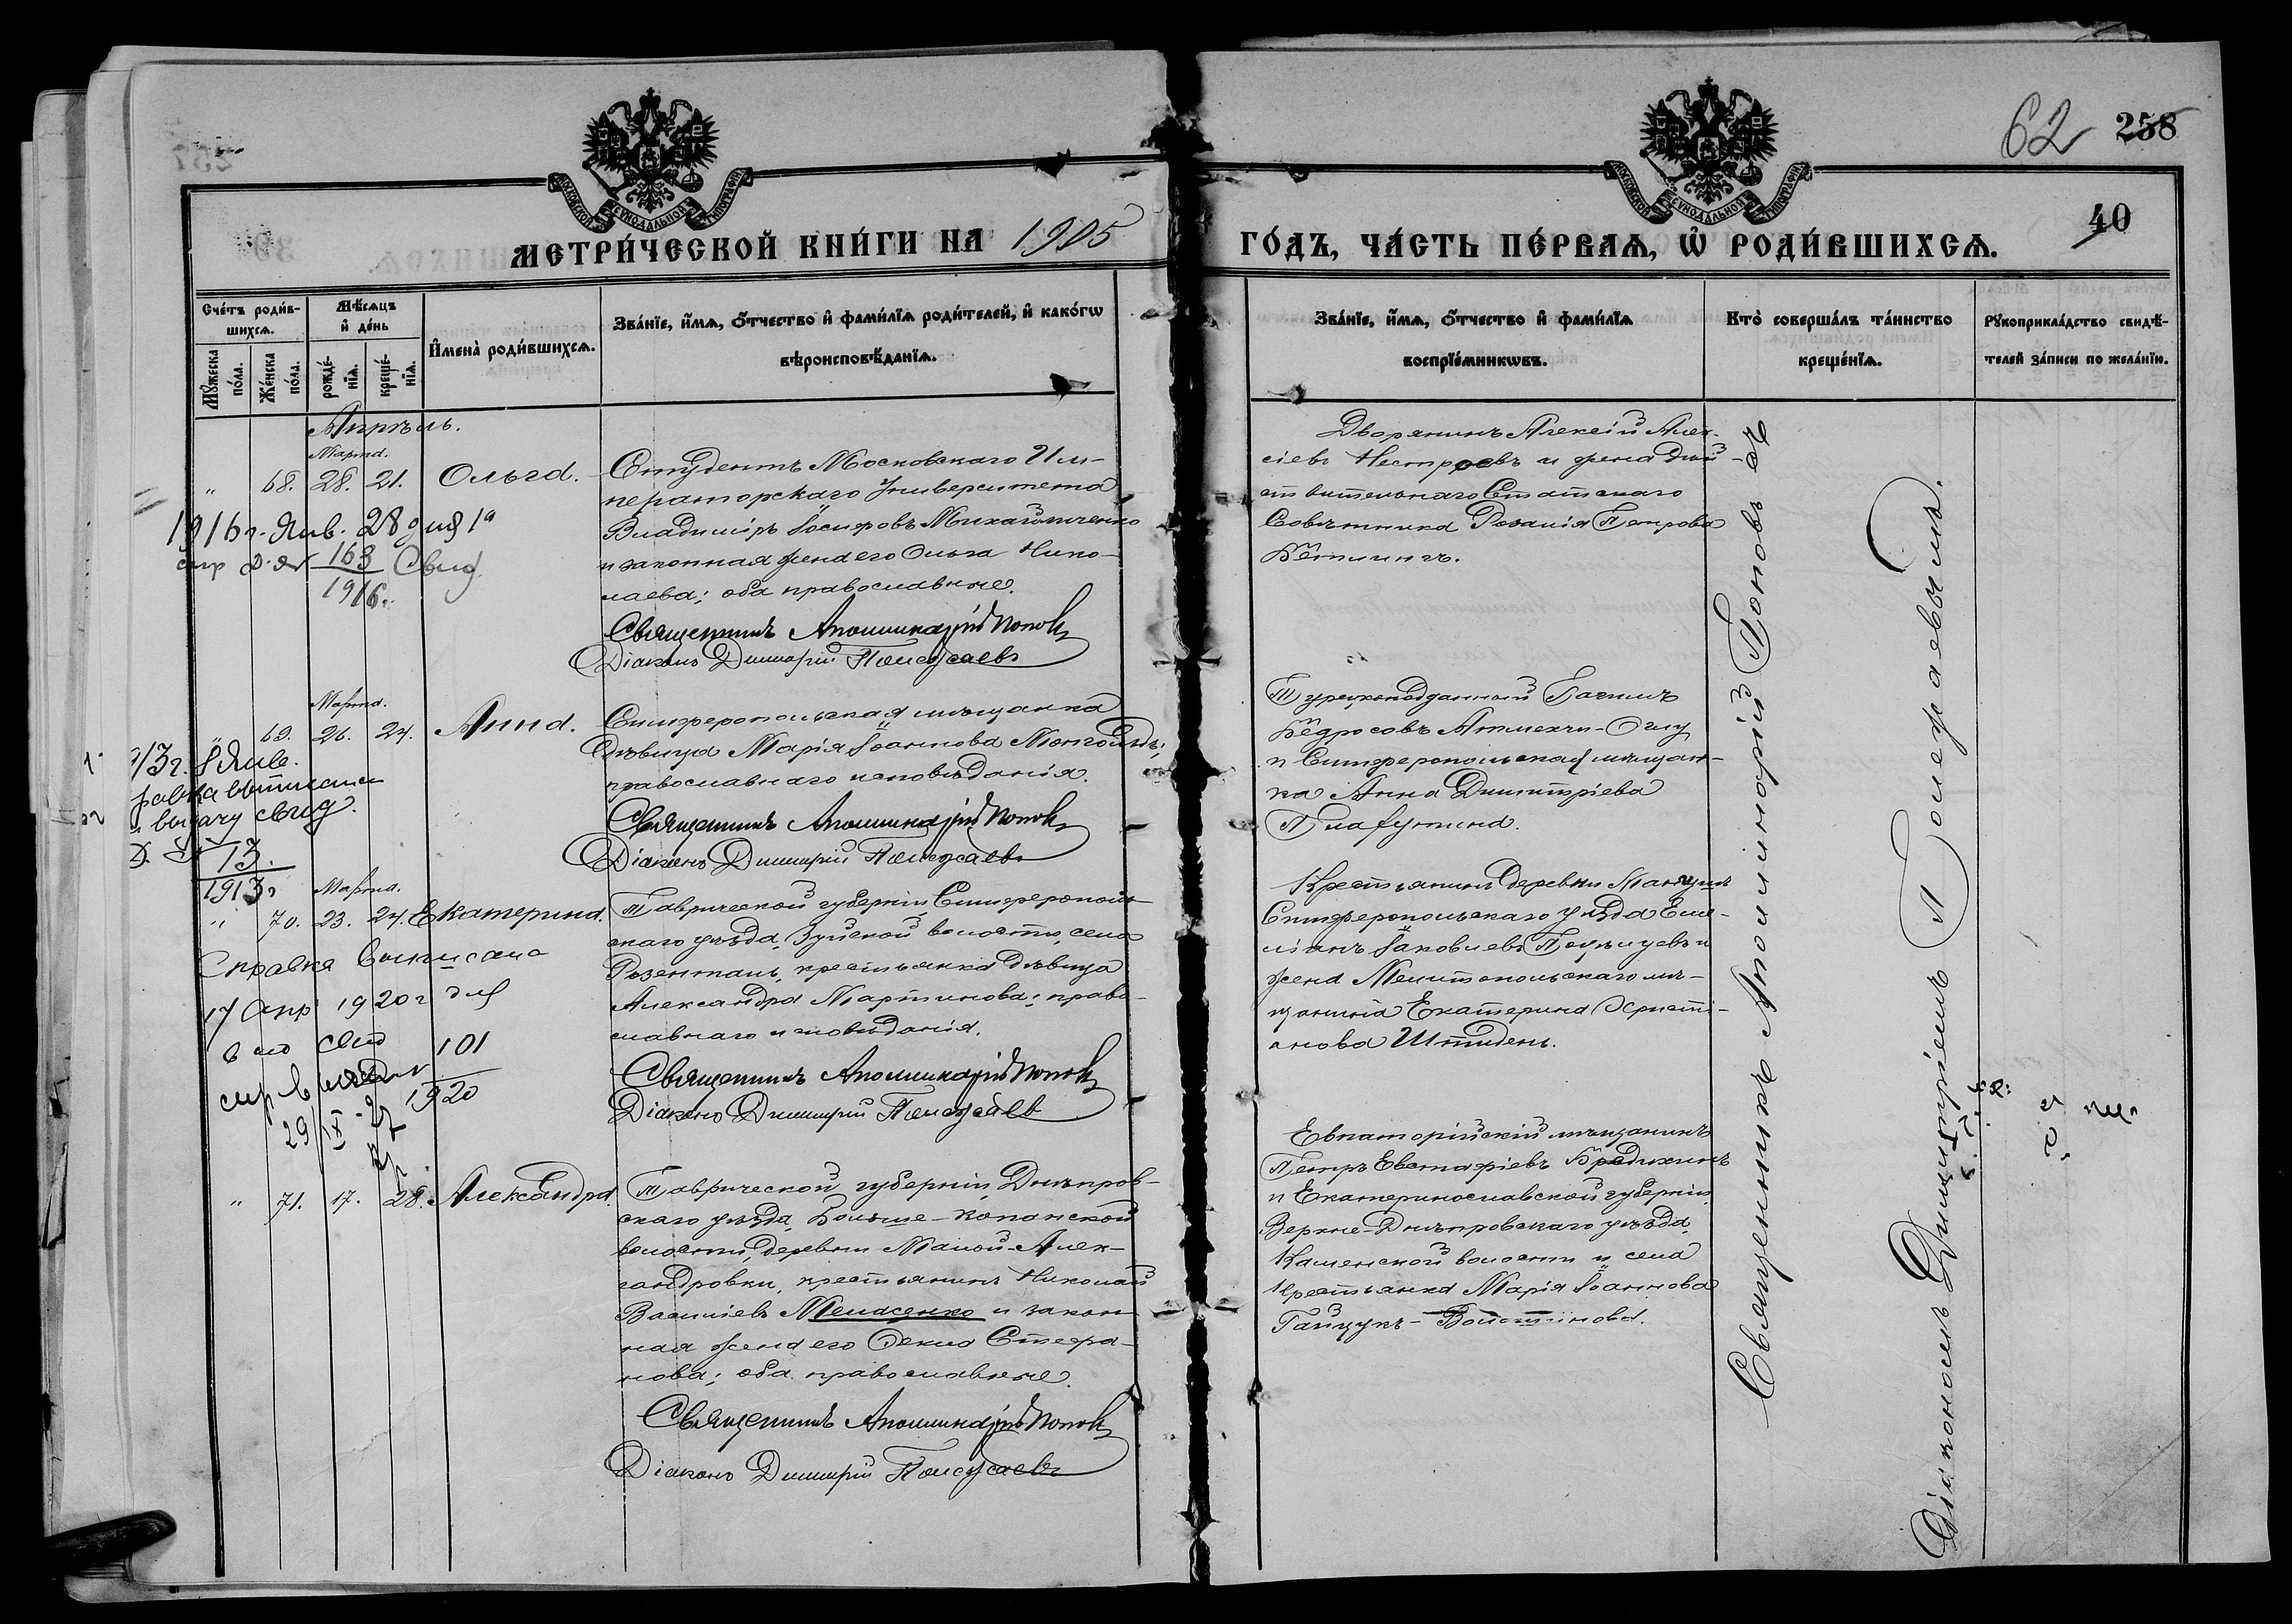 62 258
40
МЕТРИ́ЧЕСКОЙ КНИ́ГИ НА 1905 ГО́ДЪ, ЧА́СТЬ ПЕ́РВАѦ, Ѡ҆ РОДИ́ВШИХСѦ.
Сче́тъ роди́в-
шихсѧ.
Мꙋ́жеска по́ла.
Же́нска по́ла.
Мѣ́сѧцъ и҆ де́нь
рожде́-нїѧ.
креще́-нїѧ.
И҆мена̀ роди́вшихсѧ.
Зва́нїе, и҆́мѧ, ѻ҆́тчество и҆ фами́лїѧ роди́телей, и҆ како́гѡ
вѣроисповѣ́данїѧ.
Зва́нїе, и҆́мѧ, ѻ҆́тчество и҆ фами́лїѧ
воспрїе́мникѡвъ.
Кто̀ соверша́лъ та́инство
креще́нїѧ.
Рꙋкоприкла́дство свидѣ́-
телей за́писи по жела́нїю.
Апрѣль.
Марта.
" 68. 28. 21. Ольга.
Студентъ Московскаго Им-
ператорскаго Университета
Владиміръ Іосифовъ Михайличенко
и законная жена его Ольга Нико-
лаева; оба православные.
Священникъ Аполлинарій Поповъ
Діаконъ Димитрій Полежаевъ
Дворянинъ Алексій Алек-
сіевъ Нестроевъ и жена Дѣй-
ствительнаго Статскаго
Совѣтника Розалія Петрова
Бетлингъ.
1916 г. Янв. 28 дня
163
1916.
Марта.
" 69. 26. 24. Анна.
Симферопольская мѣщанка
дѣвица Марія Іоаннова
православнаго исповѣданія.
Священникъ Аполлинарій Поповъ
Діаконъ Димитрій Полежаевъ
Турецкоподданный
Бедросовъ
и Симферопольская мѣщан-
ка Анна Димитріева
13 г. 8 Янв.
выдачу свид.
13.
1913 г
Марта.
" 70. 23. 24. Екатерина.
Таврической губерніи, Симферополь-
скаго уѣзда, Зуйской волости, села
Розенталь, крестьянка дѣвица
Александра Мартинова; право-
славнаго исповѣданія.
Священникъ Аполлинарій Поповъ
Діаконъ Димитрій Полежаевъ
Крестьянинъ деревни Мангушъ
Симферопольскаго уѣзда Еми-
ліанъ Іаковлевъ и
жена Мелитопольскаго мѣ-
щанина Екатерина Христі-
анова
Справка выписана
17 Апр 1920 г для
101
1920
29 IX
" 71. 17. 28. Александра.
Таврической губерніи, Днѣпров-
скаго уѣзда, Больше-Копанской
волости, деревни Малой-Алек-
сандровки, крестьянинъ Николай
Василіевъ Меласенко и закон-
ная жена его Ѳекла Стефа-
нова; оба православные.
Священникъ Аполлинарій Поповъ
Діаконъ Димитрій Полежаевъ
Евпаторійскій мѣщанинъ
Петръ Евстафіевъ Бредихинъ
и Екатеринославской губерніи,
Верхне-Днѣпровскаго уѣзда,
Каменской волости и села
крестьянка Марія Іоаннова
Священникъ Аполлинарій Поповъ съ
Діакономъ Димитріемъ Полежаевымъ.